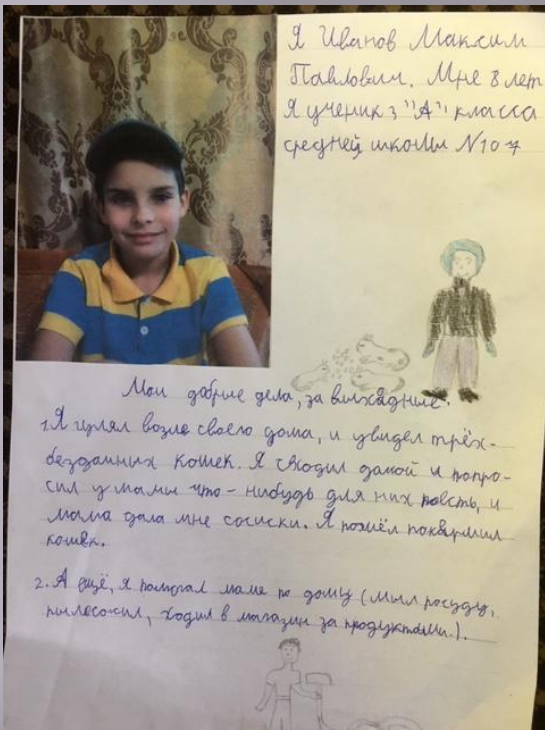 Я Иванов Максим
Павлович. Мне 8 лет
Я ученик 3 "А" класса
средней школы N107
Мои добрые дела, за выхадные.
1. Я гулял возле своего дома, и увидел трёх-
бездамных кошек. Я сходил дамой и попро-
сил у мамы что-нибудь для них поесть, и
мама дала мне сосиски. Я пошёл покармил
кошек.
2. А ещё, я помогал маме по дому (мыл посуду,
пылесосил, ходил в магазин за продуктами.).